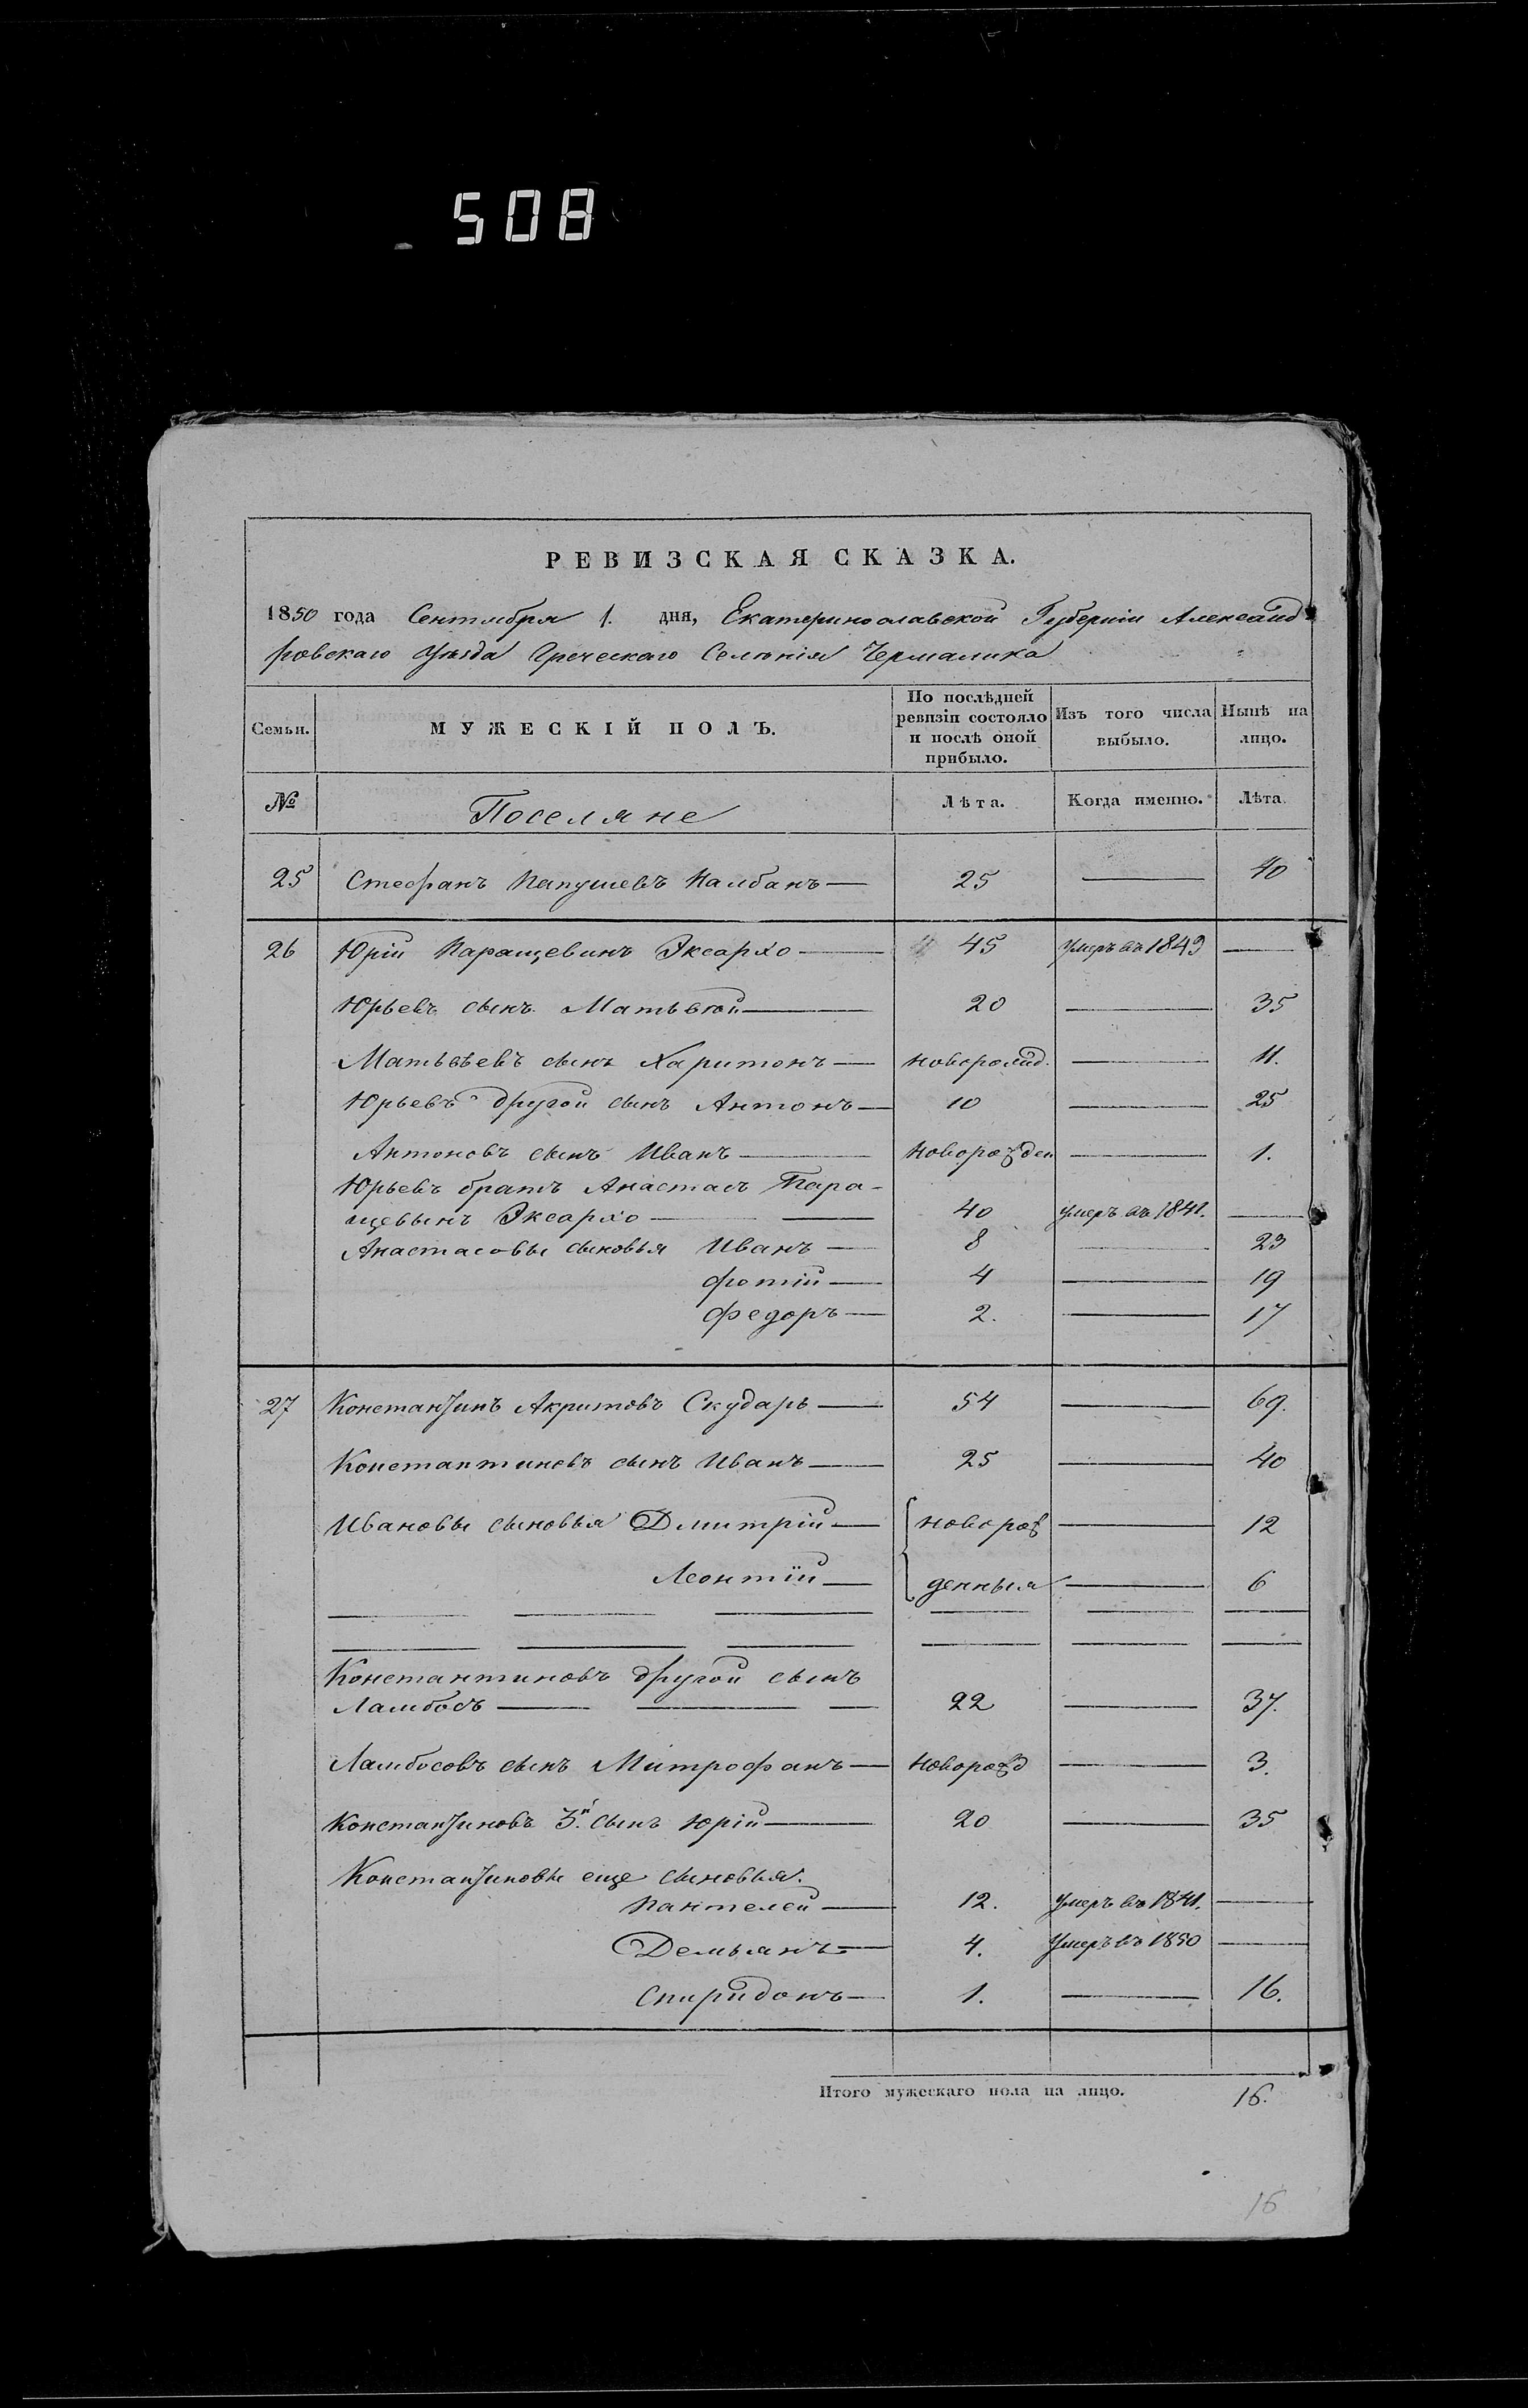 508
РЕВИЗСКАЯ СКАЗКА.
1850 года Сентября 1. дня, Екатеринославской Губерніи Александ
ровскаго Уѣзда Греческаго Селенія Чермалика
Семьи. МУЖЕСКІЙ ПОЛЪ. По послѣдней ревизіи состояло и послѣ оной прибыло. Изъ того числа выбыло. Нынѣ на лицо.
№ Поселяне Лѣта. Когда именно. Лѣта
25 Стефанъ Папушевъ Налбанъ 25 40
26 Юрій Паращевинъ Эксархо 45 Умеръ въ 1849
Юрьевъ сынъ Матьвѣй 20 35
Матьвѣевъ сынъ Харитонъ новорожд. 11.
Юрьевъ другой сынъ Антонъ 10 25
Антоновъ сынъ Иванъ Новорожден 1.
Юрьевъ братъ Анастасъ Пара-
щевынъ Эксархо 40 умеръ въ 1841.
Анастасовы сыновья Иванъ 8 23
Фотій 4 19
Федоръ 2. 17
27 Константинъ Акритовъ Скударь 54 69.
Константиновъ сынъ Иванъ 25 40
Ивановы сыновья Дмитрій новорож 12
Леонтій денныя 6
Константиновъ другой сынъ
Ламбосъ 22 37.
Ламбосовъ сынъ Митрофанъ Новорожд 3.
Константиновъ 3.й сынъ Юрій 20 35
Константиновы еще сыновья.
Пантелей 12. Умеръ въ 1841.
Демьянъ 4. Умеръ въ 1850
Спиридонъ 1. 16.
Итого мужескаго пола на лицо. 16.
16